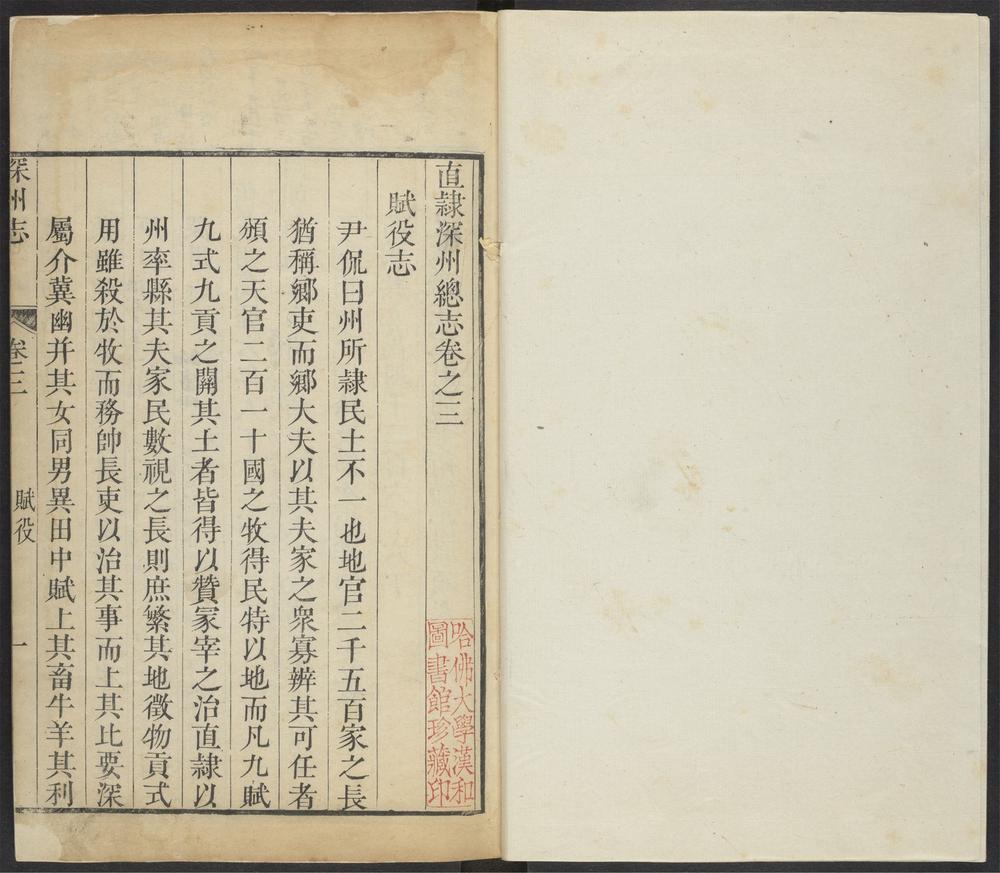 直隷深州總志卷之三
賦役志
尹侃曰州所隷民土不一也地官二千五百家之長
猶稱鄉吏而鄉大夫以其夫家之衆寡辨其可任者
頒之天官二百一十國之牧得民特以地而凡九賦
九式九貢之關其土者皆得以贊冡宰之治直隷以
州率縣其夫家民數視之長則庶繁其地徵物貢式
用雖殺於牧而務帥長吏以治其事而上其比要深
屬介冀幽并其女同男異田中賦上其畜牛羊其利
深州志
卷三
賦役
一
哈佛大學漢和
圖書館珍藏印